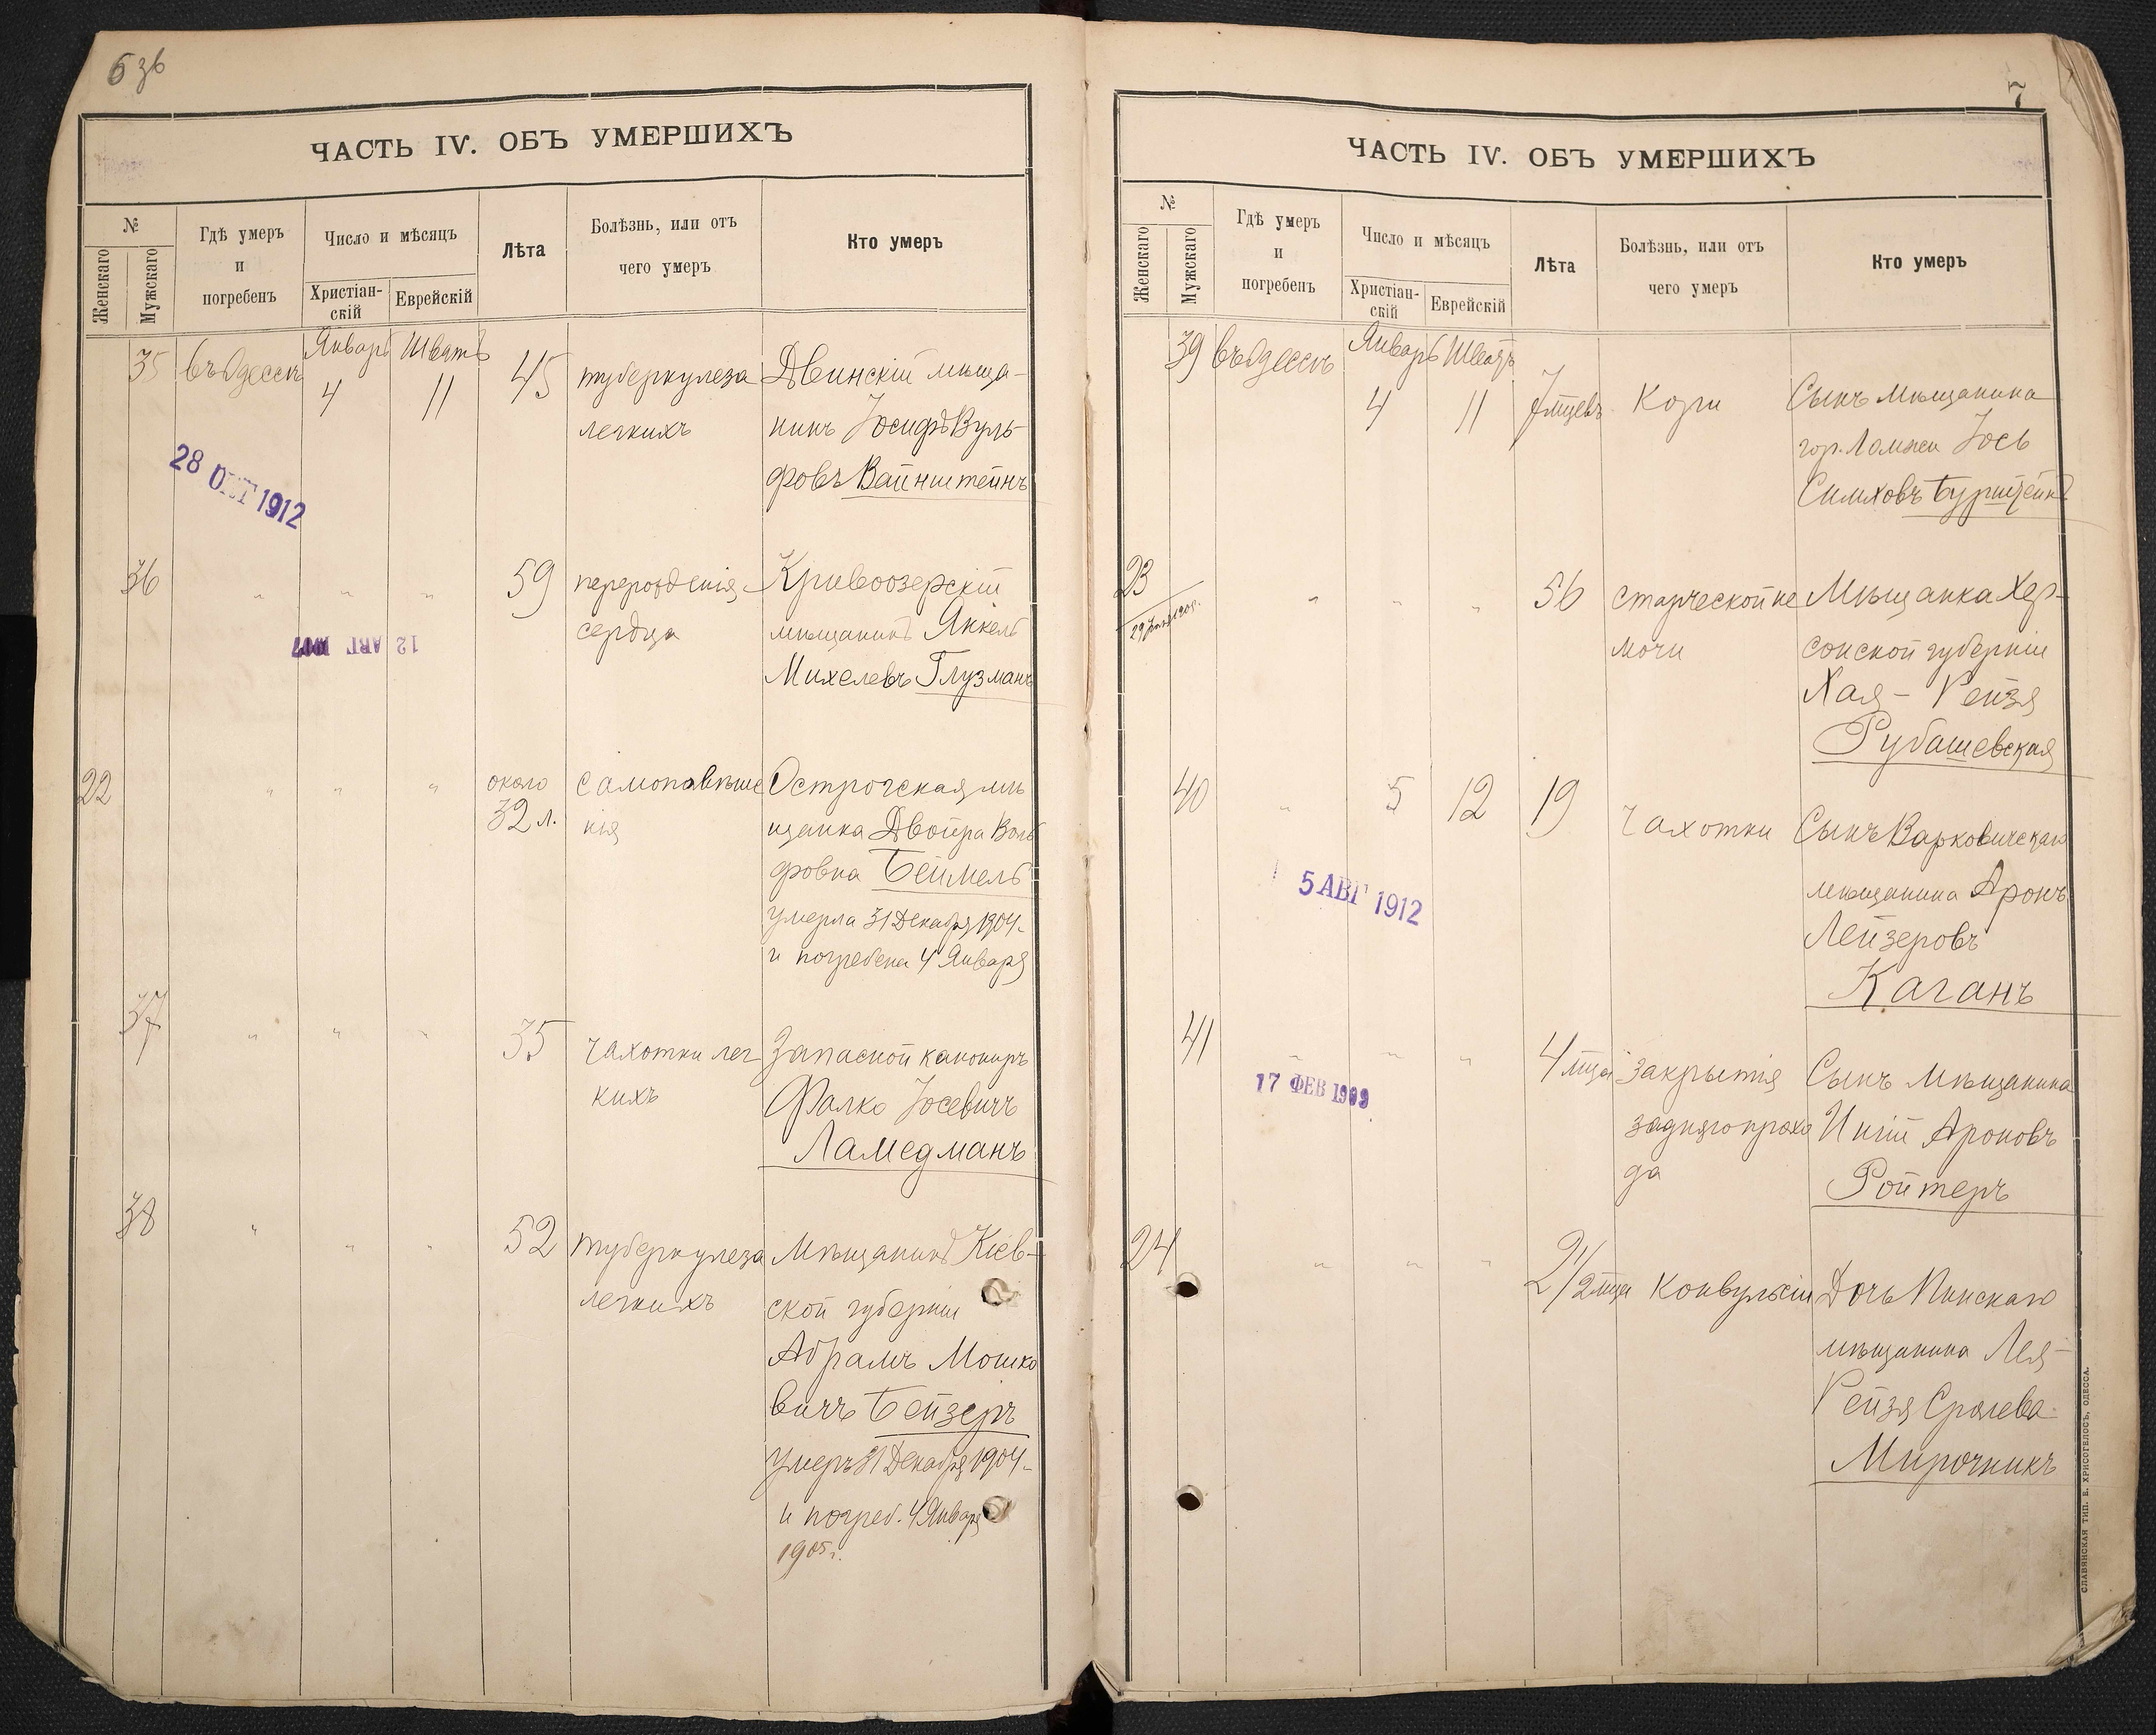 6 зв
ЧАСТЬ IV. ОБЪ УМЕРШИХЪ
№
Женскаго
Мужскаго
Гдѣ умеръ
и
погребенъ
Число и мѣсяцъ
Христіан-
скій
Еврейскій
Лѣта
Болѣзнь, или отъ
чего умеръ
Кто умеръ
35 въ Одессѣ Январь 4 Шватъ 11 45 туберкулеза Двинскій мѣща-
легкихъ нинъ Іосифъ Вуль-
фовъ Вайнштейнъ
28 ОКТ 1912
36 " " " 59 перерожденія Кривоозерскій
сердца мѣщанинъ Янкель
Михелевъ Глузманъ
12 АВГ 1907
22 " " " около 32 л. самоповѣше Острогская мѣ
нія щанка Двойра Воль
фовна Беймель
умерла 31 Декабря 1904-
и погребена 4 Января
37 " " " 35 чахотки лег Запасной канониръ
кихъ Фалко Іосевичъ
Ламедманъ
38 " " " 52 туберкулеза Мѣщанинъ Кіев-
легкихъ ской губерніи
Абрамъ Мошко
вичъ Бейзеръ
умеръ 31 Декабря 1904-
и погреб. 4 Января
1905 г.
7
ЧАСТЬ IV. ОБЪ УМЕРШИХЪ
№
Женскаго
Мужскаго
Гдѣ умеръ
и
погребенъ
Число и мѣсяцъ
Христіан-
скій
Еврейскій
Лѣта
Болѣзнь, или отъ
чего умеръ
Кто умеръ
39 въ Одессѣ Январь 4 Шватъ 11 7 мцевъ Кори Сынъ мѣщанина
гор. Ломжи Іось
Симховъ Бурштейнъ
23 " " " 56 старческой не Мѣщанка Хер-
мочи сонской губерніи
Хая- Рейзя
Рубашевская
40 " 5 12 19 чахотки Сынъ Варковичскаго
мѣщанина Аронъ
Лейзеровъ
Каганъ
5 АВГ 1912
41 " " " 4 мца закрытія Сынъ мѣщанина
задняго прохо Ароновъ
да Ройтеръ
17 ФЕВ 1909
24 " " " 2 1/2 мца Конвульсіи Дочь Пинскаго
мѣщанина Лея-
Рейзя Сролева
Мирочникъ
СЛАВЯНСКАЯ ТИП. Е. ХРИСОГЕЛОСЪ, ОДЕССА.